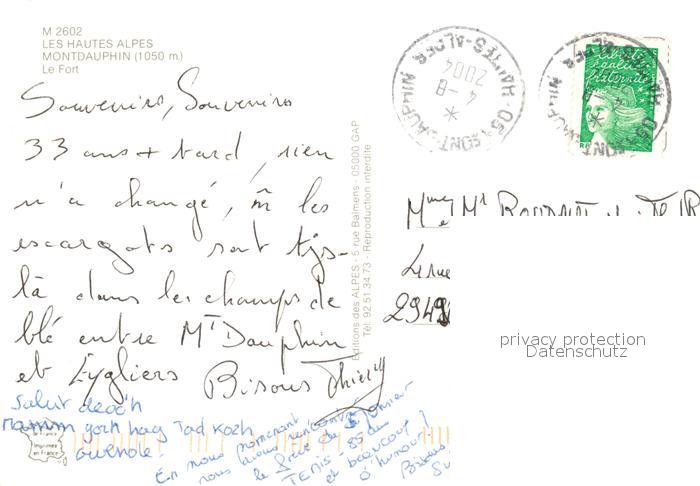 M 2602
LES HAUTES ALPES
MONTDAUPHIN (1050 m.)
Le Fort
Souvenirs, Souvenirs
33 ans + tard, rien
n'a changé, m̂ les
escargots sont tjs-
là dans les champs de
blé entre Mt Dauphin
et Eygliers Bisous Thierry
Salut deoc'h
mamm gozh hag Tad kozh
En nous promenant
nous avons rencontré
le
85 ans
et beaucoup
d'humour!
Bisous
Editions des ALPES - 5 rue Balmens - 05000 GAP
Tél. 92 51 34 73 - Reproduction interdite
Imprimée
en France
05 MONTDAUPHIN HAUTES-ALPES
4 -8
2004
Liberté
égalité
fraternité
Mme et Mr
privacy protection
Datenschutz